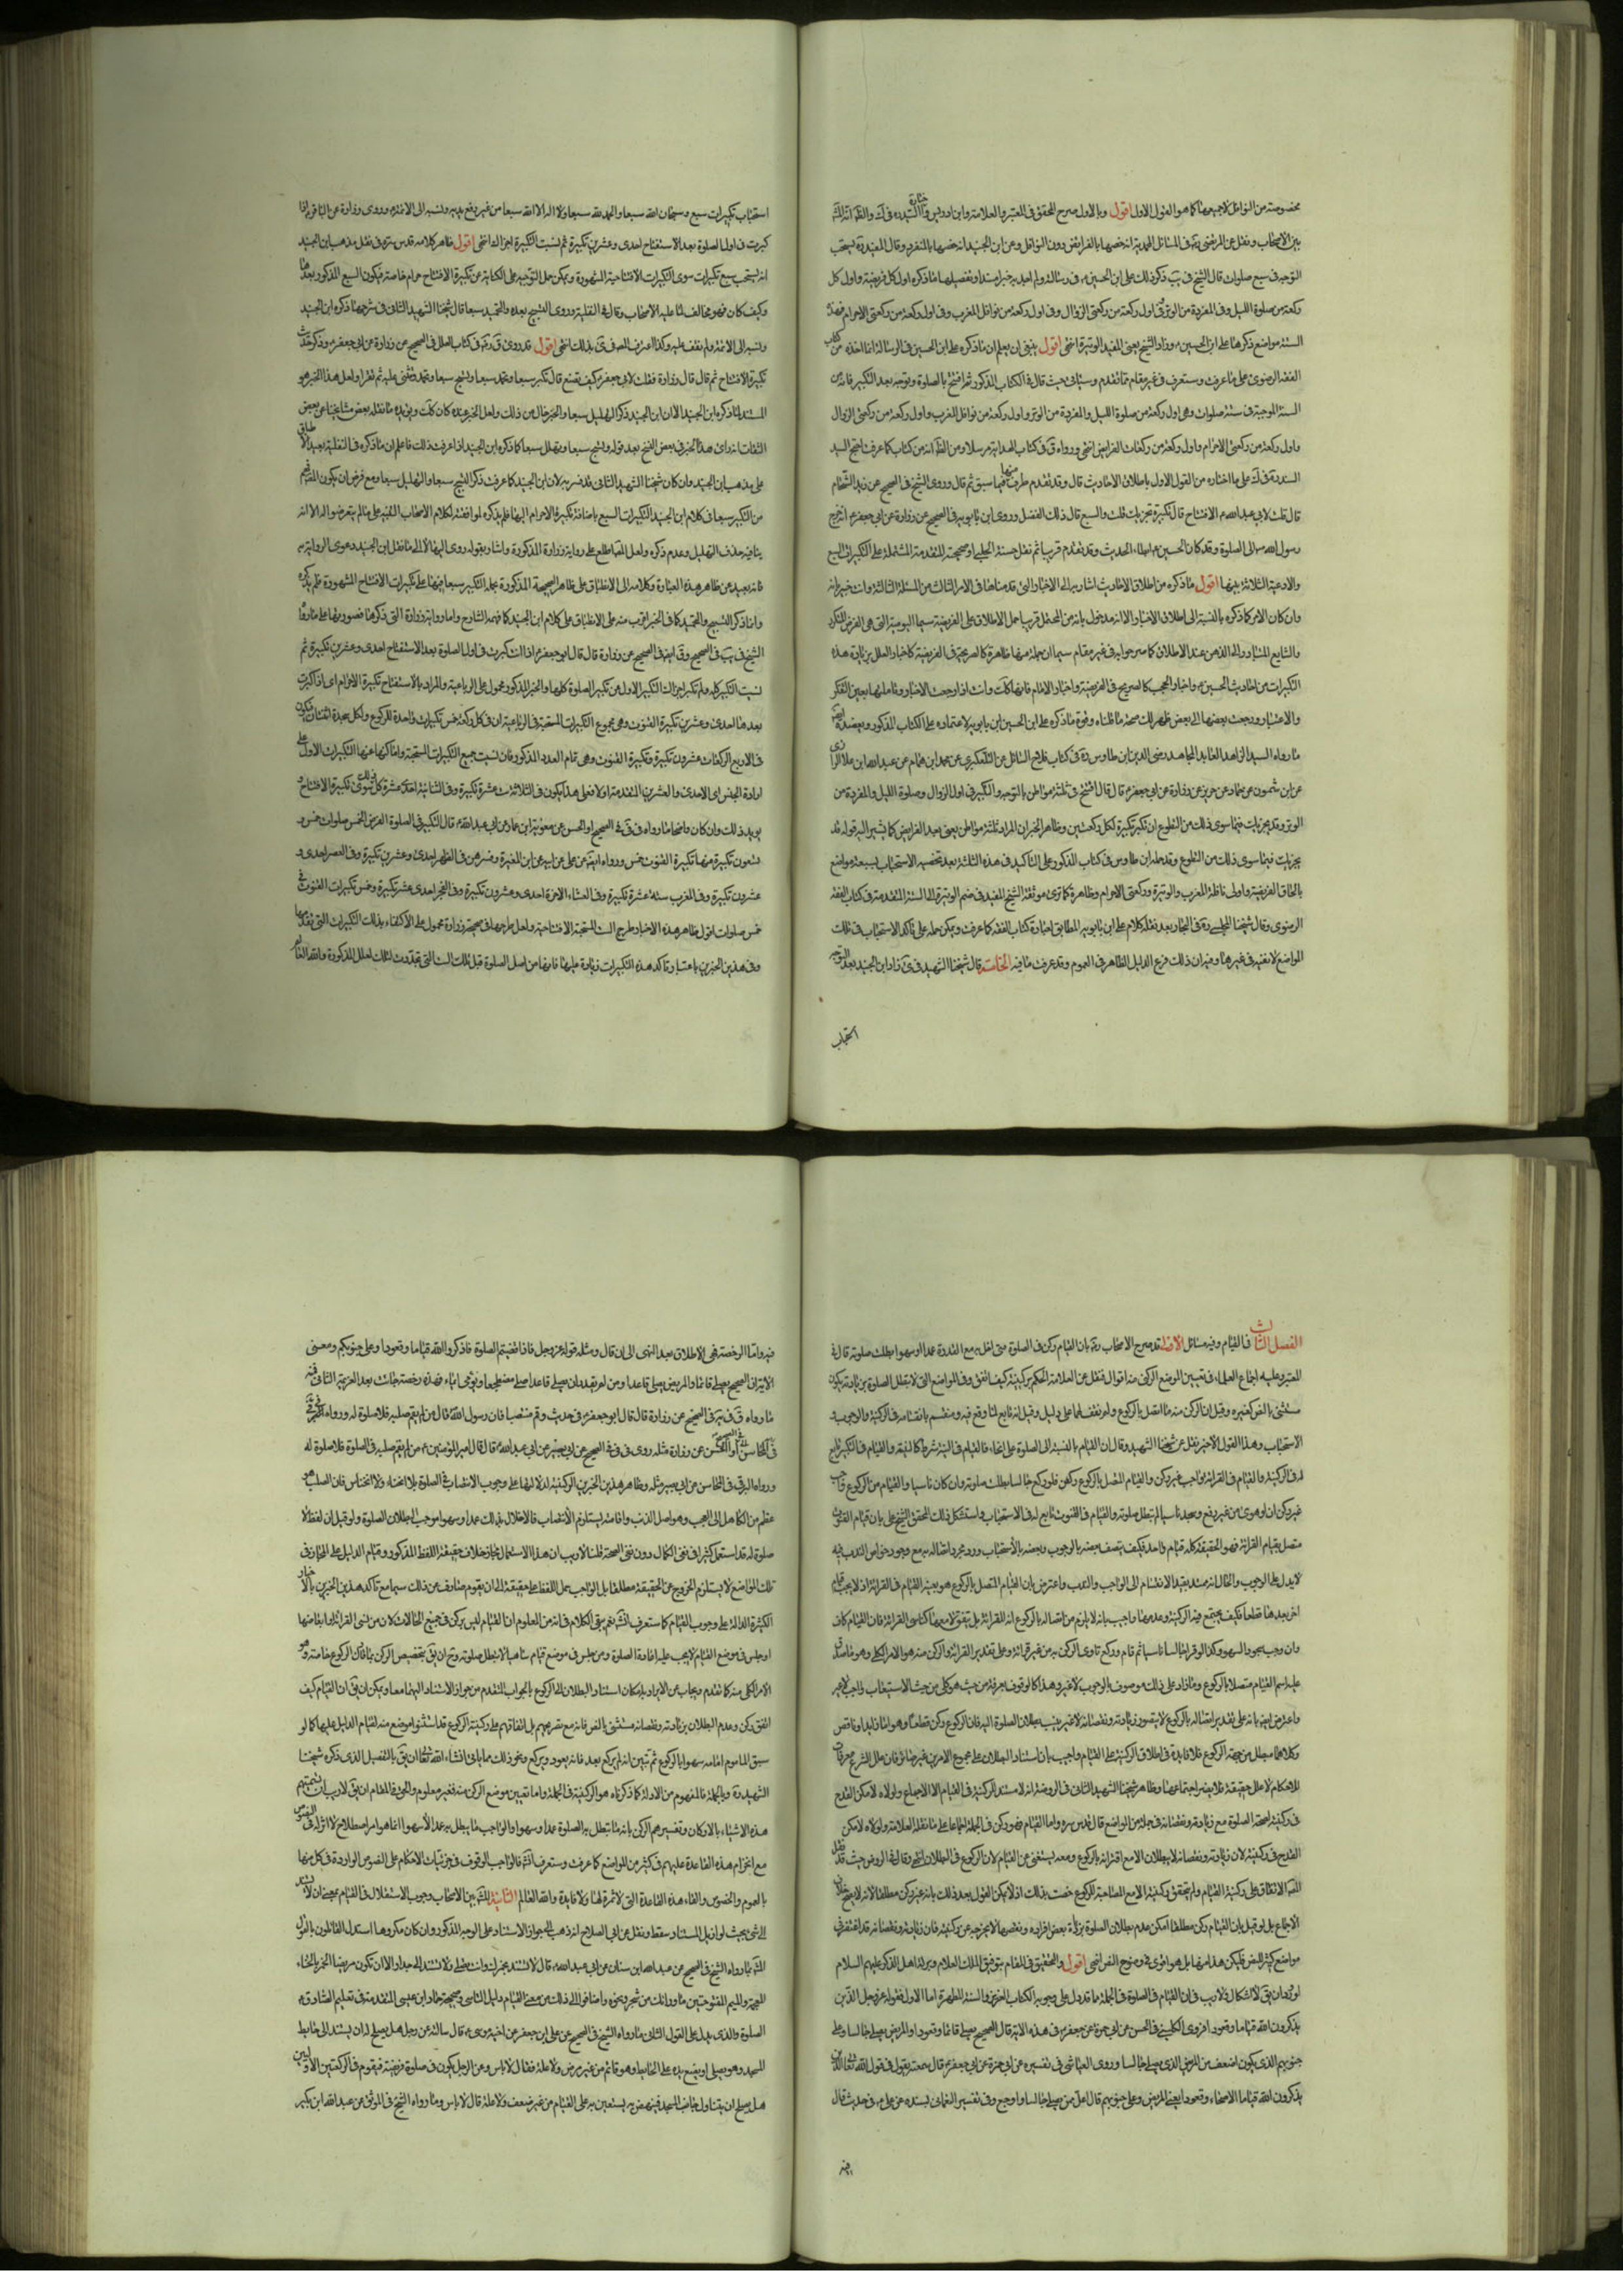 مخصوصة من النوافل لا جميعها كما هو القول الاول اقول وبالاول صرح المحقق في المعتبر والعلامة وابن ادريس
بين الاصحاب ونقل عن المرتضى في المسائل المحمدية انه خصها بالفرائض دون النوافل وعن ابن الجنيد انه خصها بالمنفرد وقال المفيد يستحب
التوجه في سبع صلوات قال الشيخ في يب ذكر ذلك علي ابن الحسين في رسالته ولم اجد به خبرا مسندا وتفصيلها ما ذكره اول كل فريضة واول كل
ركعة من صلوة الليل وفي المفردة من الوتر وفي اول ركعة من ركعتي الزوال وفي اول ركعة من نوافل المغرب وفي اول ركعة من ركعتي الاحرام فهذه
الستة مواضع ذكرها علي ابن الحسين وزاد الشيخ يعني المفيد الوتيرة انتهى اقول ينبغي ان يعلم ان ما ذكره علي ابن الحسين في الرسالة انما اخذه من كتاب
الفقه الرضوي على ما عرفت وستعرف في غير مقام مما تقدم وسيأتي حيث قال في الكتاب المذكور ثم افتتح بالصلوة وتوجه بعد التكبير فانه من
السنة الموجبة في ستة صلوات وهي اول ركعة من صلوة الليل والمفردة من الوتر واول ركعة من نوافل المغرب واول ركعة من ركعتي الزوال
واول ركعة من ركعتي الاحرام واول ركعة من ركعات الفرائض انتهى
السند في ك على ما اختاره من القول الاول باطلاق الاحاديث قال وقد تقدم طرف منها فيما سبق ثم قال وروى الشيخ في الصحيح عن زيد الشحام
قال قلت لابي عبد الله الافتتاح قال تكبيرة تجزيك قلت والسبع قال ذلك الفضل وروى ابن بابويه في الصحيح عن زرارة عن ابي جعفر انه خرج
رسول الله الى الصلوة وقد كان الحسين ابطا الحديث وقد تقدم قريبا ثم نقل حسنة الحلبي او صحيحته المتقدمة المشتملة على التكبيرات السبع
والادعية الثلاثة بينها اقول ما ذكره من اطلاق الاحاديث اشار به الى الاخبار التي قدمناها في الامر الثالث من المسئلة الثالثة وانت خبير بانه
وان كان الامر كما ذكره بالنسبة الى اطلاق الاخبار الا انه مدخول بانه من المحتمل قريبا حمل الاطلاق على الفريضة سيما اليومية التي هي الفرض المتكرر
والشايع المتبادر الى الذهن عند الاطلاق كما صرحوا به في غير مقام سيما ان جملة منها ظاهرة كالصريحة في الفريضة كاخبار العلل بزيادة هذه
التكبيرات من احاديث الحسين واخبار الحجب كالصريح في الفريضة واخبار الامام فانها كذلك وانت اذا راجعت الاخبار وتاملتها بعين الفكر
والاعتبار ورجعت بعضها الى بعض ظهر لك صحة ما قلناه وقوة ما ذكره علي ابن الحسين ابن بابويه لاعتماده على الكتاب المذكور ويعضده ايضا
ما رواه السيد الزاهد العابد المجاهد رضي الدين ابن طاوس في كتاب فلاح السائل عن التلعكبري عن محمد ابن همام عن عبد الله ابن علا
عن ابن شمون عن حماد عن حريز عن زرارة عن ابي جعفر قال قال افتتح في ثلثة مواطن بالتوجه والتكبير في اول الزوال وصلوة الليل والمفردة من
الوتر وقد يجزيك فيما سوى ذلك من التطوع ان تكبر تكبيرة لكل ركعتين وظاهر الخبر ان المراد ثلثة مواطن يعني بعد الفرايض كما يشير اليه قوله قد
يجزيك فيما سوى ذلك من التطوع وقد حمله ابن طاوس في كتاب المذكور على التاكيد في هذه الثلثة بعد تخصيصه الاستحباب بسبعة مواضع
بالحاق الفريضة واولى نافلة المغرب والوتيرة وركعتي الاحرام
الرضوي وقال شيخنا المجلسي في البحار بعد نقله كلام علي ابن بابويه المطابق لعبارة كتاب الفقه كما عرفت ويمكن حمله على تاكد الاستحباب في تلك
المواضع لا نفيه في غيرها وفيه ان ذلك فرع الدليل الظاهر في العموم وقد عرفت ما فيه الخامسة قال شيخنا الشهيد في ى زاد ابن الجنيد بعد التوجه
استحباب
استحباب تكبيرات سبع وسبحان الله سبعا والحمد لله سبعا ولا اله الا الله سبعا من غير رفع يديه ونسبه الى الائمة وروى زرارة عن الباقر اذا
كبرت في اول الصلوة بعد الاستفتاح احدى وعشرين تكبيرة ثم نسيت التكبيرة اجزاك انتهى اقول ظاهر كلامه قدس سره في نقل مذهب ابن الجنيد
انه يستحب سبع تكبيرات سوى التكبيرات الافتتاحية المشهورة ويمكن حمل التوجه على الكناية عن تكبيرة الافتتاح حرام خاصة فيكون السبع المذكور بعدها
وكيف كان فهو مخالف لما عليه الاصحاب وقال في النفلية وروى التسبيح بعده والتحميد سبعا قال شيخنا الشهيد الثاني في شرحها ذكره ابن الجنيد
ونسبه الى الائمة ولم نقف عليه وكذا اعترف المصنف في ى بذلك انتهى اقول قد روى ق في كتاب العلل في الصحيح عن زرارة عن ابي جعفر وذكر حديث
تكبيرة الافتتاح ثم قال قال زرارة فقلت لابي جعفر كيف نصنع قال تكبر سبعا وتحمد سبعا وتسبح سبعا وتحمد وتثني عليه ثم تقرا ولعل هذا الخبر هو
المستند لما ذكره ابن الجنيد الا ان ابن الجنيد ذكر التهليل سبعا والخبر خال من ذلك ولعل الخبر عنده كان كذلك ويؤيده ما نقله بعض مشايخنا عن بعض
الثقات انه راى هذا الخبر في بعض النسخ بعد قوله وتسبح سبعا وتهلل سبعا كما ذكره ابن الجنيد اذا عرفت ذلك فاعلم ان ما ذكره في النفلية بعيد الانطباق
على مذهب ابن الجنيد وان كان شيخنا الشهيد الثاني قد فسره به لان ابن الجنيد كما عرفت ذكر التسبيح سبعا والتهليل سبعا ومع فرض ان يكون
من التكبير سبعا في كلام ابن الجنيد التكبيرات السبع باضافة تكبيرة الاحرام اليها فلم يذكره لموافقته لكلام الاصحاب
ينافيه حذف التهليل وعدم ذكره ولعل المصنف اطلع على رواية زرارة المذكورة واشار بقوله روى اليها لا الى ما نقل ابن الجنيد دعوى الرواية به
فانه بعيد عن ظاهر هذه العبارة وكلامه الى الانطباق على ظاهر الصحيحة المذكورة بحمل التكبير سبعا فيها على تكبيرات الافتتاح المشهورة فلم يذكره
وانما ذكر التسبيح والتحميد كما في الخبر اقرب منه على الانطباق على كلام ابن الجنيد كما فهمه الشارح واما رواية زرارة التي ذكرها
الشيخ في يب في الصحيح وق ايضا في الصحيح عن زرارة قال قال ابو جعفر اذا انت كبرت في اول الصلوة بعد الاستفتاح احدى وعشرين تكبيرة ثم
نسيت التكبير كله ولم تكبر اجزاك التكبير الاول من تكبير الصلوة كلها والخبر المذكور محمول على الرباعية والمراد بالاستفتاح تكبيرة الاحرام اي اذا كبرت
بعدها احدى وعشرين تكبيرة القنوت وهي مجموع التكبيرات المستحبة في الرباعية ان في كل ركعة خمس تكبيرات واحدة للركوع ولكل سجدة اثنتان فيكون
في الاربع الركعات عشرون تكبيرة وتكبيرة القنوت وهي تمام العدد المذكور فان نسيت جميع التكبيرات المستحبة
ارادة الجنس اي الاحدى والعشرين المتقدمة اولا فعلى هذا يكون في الثلاثية ست عشرة تكبيرة وفي الثنائية احدى عشرة كل ذلك سوى تكبيرة الافتتاح و
يؤيد ذلك وان كان واضحا ما رواه في في الصحيح او الحسن عن معوية ابن عمار عن ابي عبد الله قال التكبير في الصلوة الفرض الخمس صلوات خمس و
تسعون تكبيرة منها تكبيرة القنوت خمس ورواه ايضا عن علي عن ابيه عن ابن المغيرة وفسرهن في الظهر احدى وعشرين تكبيرة وفي العصر احدى و
عشرون تكبيرة وفي المغرب ستة عشرة تكبيرة وفي العشاء الاخرة احدى وعشرون تكبيرة وفي الفجر احدى عشر تكبيرة وخمس تكبيرات القنوت في
خمس صلوات اقول ظاهر هذه الاخبار طرح الست المستحبة الافتتاحية ولعل طرحها في صحيحة زرارة محمول على الاكتفاء بذلك التكبيرات التي تقدمها
وفي هذين الخبرين باعتبار تاكد هذه التكبيرات زيادة عليها فانها من اصل الصلوة قبل تلك الست التي تجددت لتلك العلل المذكورة والله العالم
الفصل الثالث في القيام وفيه مسائل الاولى قد صرح الاصحاب بان القيام ركن في الصلوة متى اخل به مع القدرة عمدا او سهوا بطلت صلوته قال في
المعتبر وعليه اجماع العلماء وفي تعيين الموضع الركن منه اقوال فنقل عن العلامة الحكم بركنيته كيف اتفق وفي المواضع التي لا تبطل الصلوة بزيادته يكون
مستثنى بالنص كغيره وقيل ان الركن منه ما اتصل بالركوع ولم نقف لها على دليل وقيل انه تابع لما وقع فيه ومنقسم بانقسامه في الركنية والوجوب و
الاستحباب وهذا القول الاخير نقل عن شيخنا الشهيد وقال ان القيام بالنسبة الى الصلوة على انحاء فالقيام في النية شرط كالنية والقيام في التكبير تابع
له في الركنية والقيام في القرائة واجب غير ركن والقيام المتصل بالركوع ركن فلو ركع جالسا بطلت صلوته وان كان ناسيا والقيام من الركوع واجب
غير ركن اذ لو هوى من غير رفع وسجد ناسيا لم تبطل صلوته والقيام في القنوت تابع له في الاستحباب واستشكل ذلك المحقق الشيخ علي بان قيام القنوت
متصل بقيام القرائة فهو الحقيقة كله قيام واحد فكيف يتصف بعضه بالوجوب وبعضه بالاستحباب ورد بمجرد اتصاله به مع وجود خواص الندب فيه
لا يدل على الوجوب والحال انه ممتد يقبل الانقسام الى الواجب والندب واعترض بان القيام المتصل بالركوع هو بعينه القيام في القرائة اذ لا يجب قيام
اخر بعدها قطعا فكيف يجتمع فيه الركنية وعدمها واجيب بانه لا يلزم من اتصاله بالركوع
وان وجب سجود السهو وكذا لو قرا جالسا ناسيا ثم قام وركع تادى الركن به من غير قرائة وعلى تقدير القرائة والركن منه هو الامر الكلي وهو ما صدق
عليه اسم القيام متصلا بالركوع وما زاد على ذلك موصوف بالوجوب لا غير وهذا كالوقوف بعرفة من حيث هو كلي من حيث الاستيعاب واجب لا غير
واعترض ايضا بانه على تقدير اتصاله بالركوع لا يتصور زيادته ونقصانه لا غير ينسب بطلان الصلوة اليه فان الركوع ركن قطعا وهو اما زايد او ناقص
وكلاهما مبطل من جهة الركوع فلا فايدة في اطلاق الركنية على القيام واجيب بان استناد البطلان على مجموع الامرين غير ضائر فان علل الشرع معرفات
للاحكام لا علل حقيقية فلا يضر اجتماعها وظاهر شيخنا الشهيد الثاني في الروضة انه لا مستند للركنية في القيام الا الاجماع ولولاه لامكن القدح
في ركنيته لصحة الصلوة مع زيادته ونقصانه في جملة من المواضع قال قدس سره واما القيام فهو ركن في الجملة اجماعا على ما نقله العلامة ولولاه لامكن
القدح في ركنيته لان زيادته ونقصانه لا يبطلان الا مع اقترانه بالركوع ومعه يستغنى عن القيام لان الركوع في البطلان انتهى وقال في الروض حيث قد نقل
المصنف الاتفاق على ركنية القيام ولم يتحقق ركنيته الا مع المصاحبة للركوع خصت بذلك اذ لا يمكن القول بعد ذلك بانه غير ركن مطلقا لانه لا ينخرق
الاجماع بل لو قيل بان القيام ركن مطلقا امكن عدم بطلان الصلوة بزيادة بعض افراده ونقصها لا يخرجه عن ركنيته فان زيادته ونقصانه قد اغتفر في
مواضع كثيرة للنص فليكن هذا منها بل هو اقوى في وضوح النص انتهى اقول والتحقيق في المقام بتوفيق الملك العلام وبركة اهل الذكر عليهم السلام
لو كان بقي الاشكال ولا ريب في ان القيام في الصلوة في الجملة ما قد دل على وجوبه الكتاب العزيز والسنة المطهرة اما الاول فقوله عز وجل الذين
يذكرون الله قياما وقعودا فروى الكليني في الحسن عن ابي حمزة عن جعفر في هذه الاية قال الصحيح يصلي قائما وقعودا والمريض يصلي جالسا وعلى
جنوبهم الذي يكون اضعف من المريض الذي يصلي جالسا وروى العياشي في تفسيره عن ابي حمزة عن ابي جعفر قال سمعته يقول في قول الله تعالى الذين
يذكرون الله قياما الاصحاء وقعودا يعني المريض وعلى جنوبهم قال اعل من يصلي جالسا او اوجع وفي تفسير النعماني بسنده عن علي في حديث قال
فيه واما الرخصة فهي الاطلاق بعد النهي الى ان قال ومثله قوله عز وجل فاذا قضيتم الصلوة فاذكروا الله قياما وقعودا وعلى جنوبكم ومعنى
الاية ان الصحيح يصلي قائما والمريض يصلي قاعدا ومن لم يقدر ان يصلي قاعدا صلى مضطجعا ويومي ايماء فهذه رخصة جائت بعد العزيمة الثاني
ما رواه ق في يه في الصحيح عن زرارة قال قال ابو جعفر في حديث وقم منتصبا فان رسول الله قال من لم يقم صلبه فلا صلوة له ورواه
عن زرارة مثله روى في في في الصحيح عن ابي بصير عن ابي عبد الله قال قال امير المؤمنين من لم يقم صلبه في الصلوة فلا صلوة له
ورواه البرقي في المحاسن عن ابي بصير مثله وظاهر هذين الخبرين الركنية لدلالتها على وجوب الانتصاب في الصلوة بلا انحناء ولا انخناس فان الصلب هو
عظم من الكاهل الى العجب وهو اصل الذنب واقامته يستلزم الانتصاب فالاخلال بذلك عمدا وسهوا موجب لبطلان الصلوة ولو قيل ان لفظ لا
صلوة له قد استعمل كثيرا في نفي الكمال دون نفي الصحة قلنا لا ريب ان هذا الاستعمال مجاز خلاف حقيقة اللفظ المذكور وقيام الدليل على المجاز في
تلك المواضع لا يستلزم الخروج عن الحقيقة مطلقا بل الواجب حمل اللفظ على حقيقته الى ان يقوم صارف عن ذلك سيما مع تاكد هذين الخبرين بالاخبار
الكثيرة الدالة على وجوب القيام كما ستعرف انشاء الله نعم يبقى الكلام في انه من المعلوم ان القيام ليس بركن في جميع الحالات لان من نسي القرائة او ابعاضها
او جلس في موضع القيام لا يجب عليه اعادة الصلوة ومن جلس في موضع قيام ناسيا لا تبطل صلوته وح ان بق بتخصيص الركن بما قارن الركوع خاصة وهو
الامر الكلي منه كما تقدم ويجاب عن الايراد بامكان استناد البطلان الى الركوع بالجواب المتقدم من جواز الاستناد اليهما معا ويمكن ان بق ان القيام كيف
اتفق ركن وعدم البطلان بزيادته ونقصانه مستثنى بالنص فانه مع تصريحهم بل اتفاقهم على ركنية الركوع قد استثنوا موضع منه لقيام الدليل عليها كما لو
سبق الماموم امامه سهوا بالركوع ثم تبين انه لم يركع بعد فانه يعود ويركع ونحو ذلك مما ياتي انشاء الله تعالى او ان بق بالتفصيل الذي ذكره شيخنا
الشهيد وبالجملة فالمفهوم من الادلة كما ذكرناه هو الركنية في الجملة واما تعيين موضع الركن منه فغير معلوم والحق في المقام ان بق لا ريب ان تسميتهم
هذه الاشياء بالاركان وتفسيرهم الركن بانه ما تبطل به الصلوة عمدا وسهوا والواجب ما يبطل به عمدا لا سهوا انما هو امر اصطلاحي لا اثر له في النصوص
مع انخرام هذه القاعدة عليهم في كثير من المواضع كما عرفت وستعرف انشاء الله فالواجب الوقوف في جزئيات الاحكام على النصوص الواردة في كل منها
بالعموم والخصوص والغاء هذه القاعدة التي لا ثمرة لها ولا فايدة والله العالم الثانية المشهور بين الاصحاب وجوب الاستقلال في القيام بمعنى ان لا يستند
الى شيء بحيث لو ازيل السناد سقط ونقل عن ابي الصلاح انه ذهب الى جواز الاستناد على الوجه المذكور وان كان مكروها استدل القائلون بالقول
المشهور بما رواه الشيخ في الصحيح عن عبد الله ابن سنان عن ابي عبد الله قال لا تستند بخمرك وانت تصلي ولا تستند الى جدار الا ان تكون مريضا الخمر بالخاء
المعجمة والميم المفتوحتين ما واراك من شجر ونحوه واضافوا الى ذلك
الصلوة والذي يدل على القول الثاني ما رواه الشيخ في الصحيح عن علي ابن جعفر عن اخيه موسى قال سالته عن رجل هل يصلح له ان يستند الى حايط
المسجد وهو يصلي او يضع يده على الحايط وهو قائم من غير مرض ولا علة فقال لا باس وعن الرجل يكون في صلوة فريضة فيقوم في الركعتين الاوليين
هل يصلح ان يتناول جانب المسجد فينهض به يستعين به على القيام من غير ضعف ولا علة قال لا باس وما رواه الشيخ في الموثق عن عبد الله ابن بكير